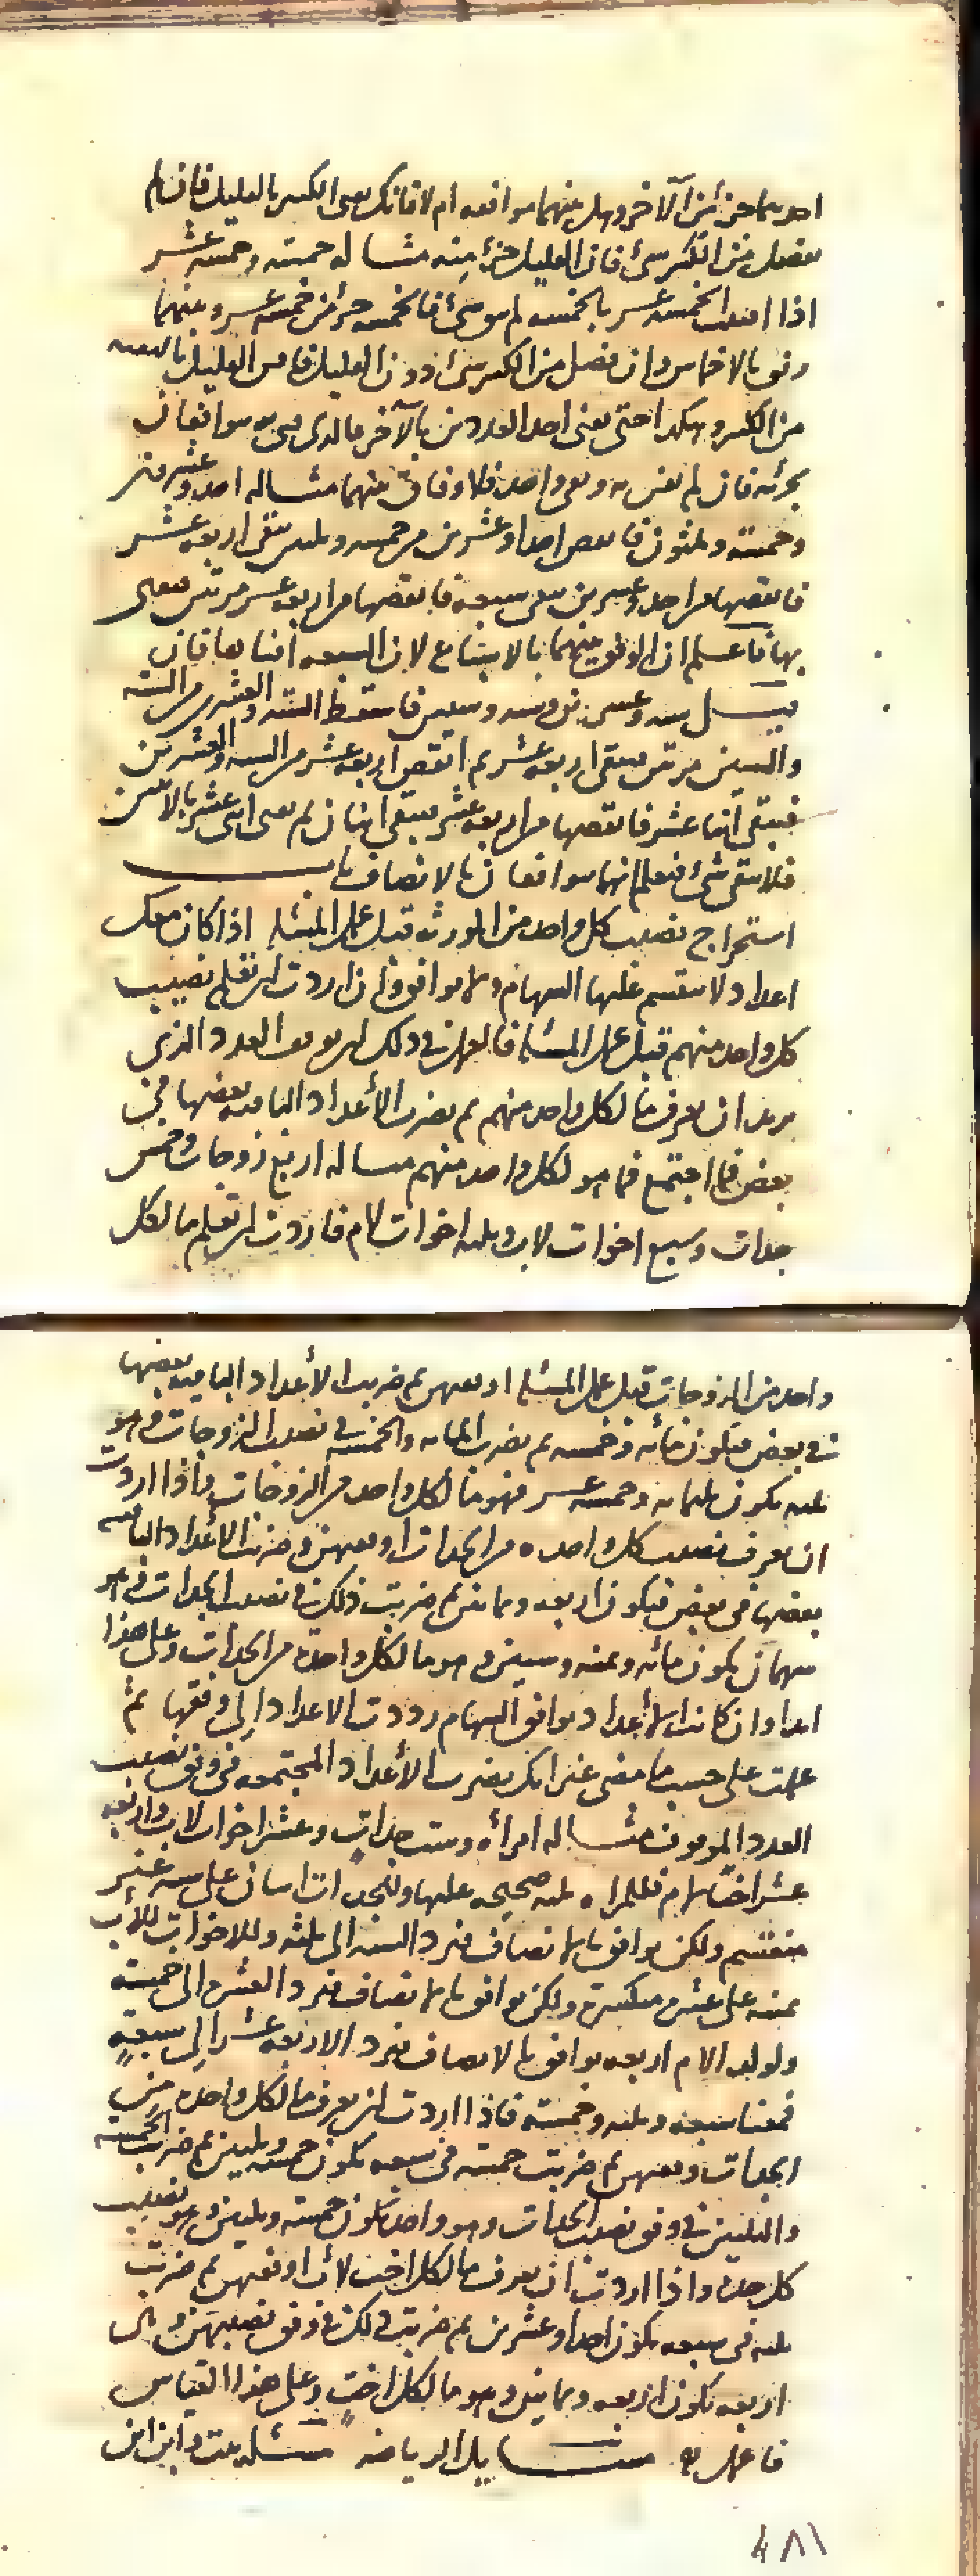 احدهما جزء من الآخر وهل بينهما موافقه ام لا فانك تلقى الكثير بالقليل فان لم
يفضل من الكثير شئ فان القليل جزء منه مثاله خمسة وخمسة عشر
اذا افنيت الخمسه عشر بالخمسه لم يبق شئ فالخمسه جزء من خمسه عشر وبينهما
وفق بالاخماس وان فضل من الكثير شئ دون القليل فانقص القليل بالبقيه
من الكثير وهكذا حتى يفنى احد العددين بالآخر فالذى يفنى به موافقان
بجزئه فان لم يفن به وبقى واحد فلا وفاق بينهما مثاله احد وعشرين
وخمسة وثلثون فانقص احدا وعشرين من خمسه وثلثين يبقى اربعه عشر
فانقصها من احد وعشرين يبقى سبعه فانقصها من اربعه عشر مرتين يفنى
بها فاعلم ان الوفق بينهما بالاسباع لان السبعه افنا بها فان
قيل سته وعشرين وسته وستين فاسقط السته والعشرين من السته
والستين مرتين يبقى اربعه عشر ثم انقص اربعه عشر من السته والعشرين
فيبقى اثنا عشر فانقصها من اربعه عشر يبقى اثنان ثم تلقى اثنى عشر بالاثنين
فلا يبقى شئ فتعلم انهما موافقان بالانصاف باب
استخراج نصيب كل واحد من الورثه قبل عمل المسئله اذا كان معك
اعداد لا تنقسم عليها السهام ولا توافق وان اردت ان تعلم نصيب
كل واحد منهم قبل عمل المسئله فالعمل في ذلك ان توقف العدد الذى
تريد ان تعرف ما لكل واحد منهم ثم تضرب الأعداد الباقيه بعضها في
بعض فما اجتمع فما هو لكل واحد منهم مساله اربع زوجات وخمس
جدات وسبع اخوات لاب وثلثه اخوات لام فاردت ان تعلم ما لكل
واحد من الزوجات قبل عمل المسئله اوقفهن ثم ضربت الأعداد الباقيه بعضها
في بعض فيكون مائه وخمسه ثم تضرب المائه والخمسه في نصيب الزوجات وهو
ثلثه يكون ثلثمائه وخمسه عشر فهو ما لكل واحد من الزوجات واذا اردت
ان تعرف نصيب كل واحده من الجدات اوقفهن وضربت الأعداد الباقيه
بعضها في بعض فيكون اربعه وثمانين ثم ضربت ذلك في نصيب الجدات وهو
سهمان يكون مائه وثمنيه وستين وهو ما لكل واحدة من الجدات وعلى هذا
ابدا وان كانت الأعداد توافق السهام رددت الاعداد الى وفقها ثم
عملت على حسب ما مضى غير انك تضرب الأعداد المجتمعه في وفق نصيب
العدد الموقوف مثاله امرأه وست جدات وعشر اخوات لاب واربعه
عشر اختا لام فللمراه ثلثه صحيحه عليها وللجدات اثنان على سته غير
منقسم ولكن توافق بالانصاف فترد السته الى ثلثه وللاخوات للأب
ثمنيه على عشره منكسره ولكن توافق بالانصاف فترد العشره الى خمسة
ولولد الام اربعه توافق بالانصاف فترد الاربعه عشر الى سبعة
فمعنا سبعه وثلثه وخمسة فاذا اردت ان تعرف ما لكل واحده من
الجدات وقفهن ثم ضربت خمسة في سبعه تكون خمسه وثلثين ثم ضربت الخمسه
والثلثين في وفق نصيب الجدات وهو واحد تكون خمسة وثلثين وهو نصيب
كل جده واذا اردت ان تعرف ما لكل اخت لأب اوقفتهن ثم ضربت
ثلثه في سبعه يكون احدا وعشرين ثم ضربت ذلك في وفق نصيبهن وهى
اربعه تكون اربعه وثمانين وهو ما لكل اخت وعلى هذا القياس
فاعمل به مسايل الرياضه مسئله بنت وابن ابن
٤٨١